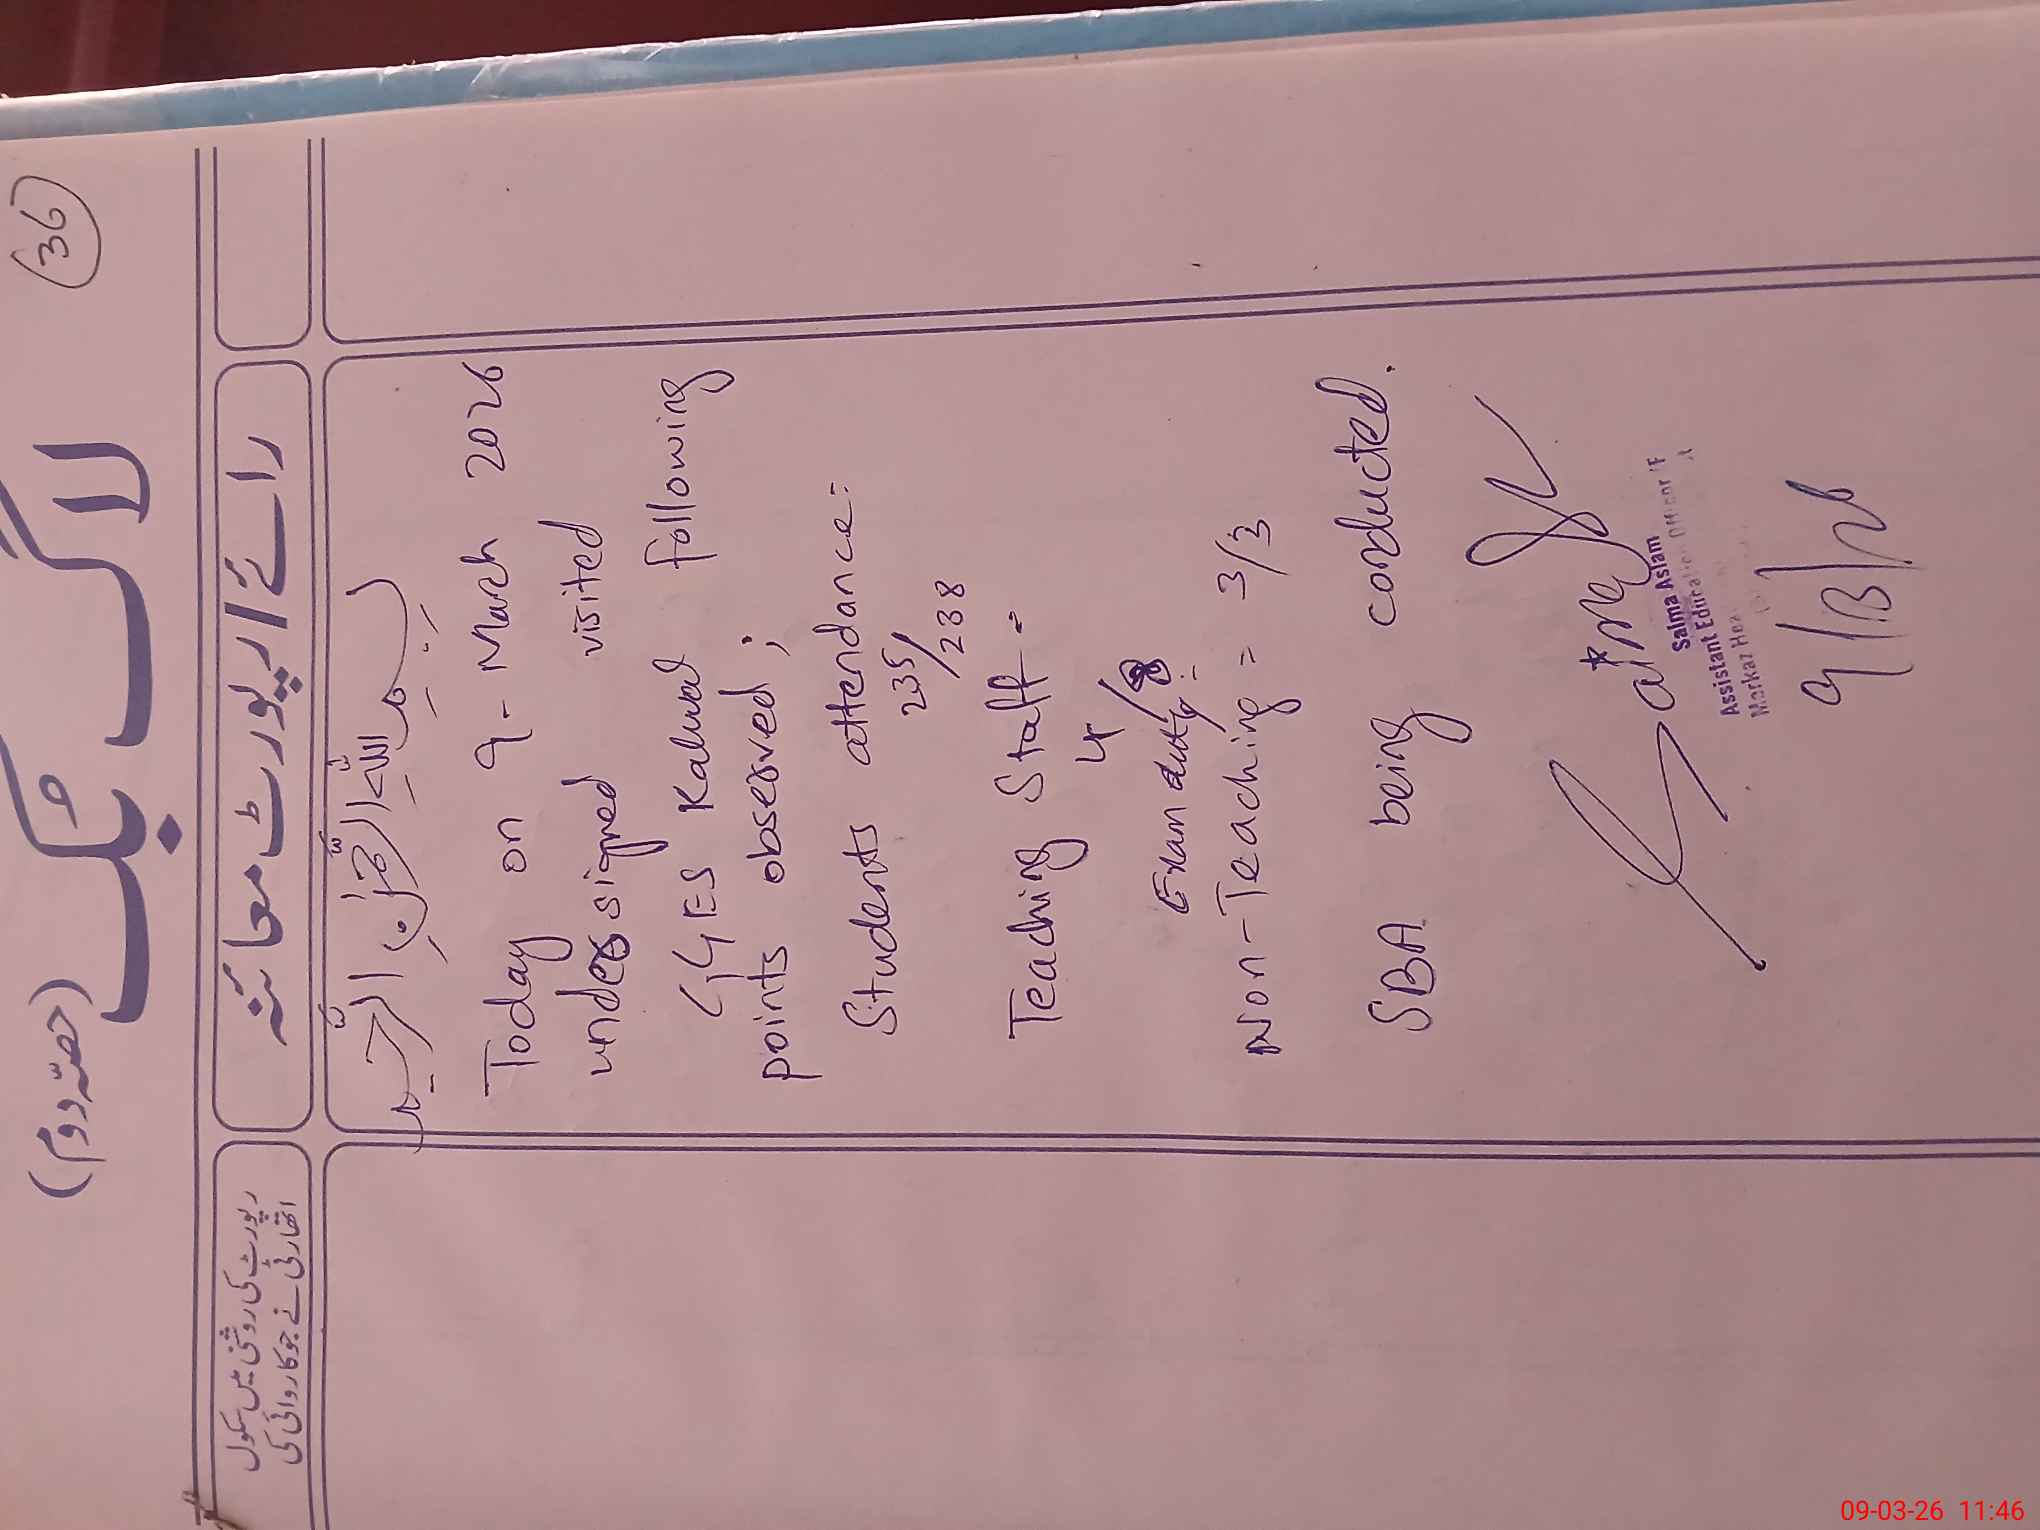 36
لاگ بُک
(حصّہ دوم)
رائے / رپورٹ معائنہ
رپورٹ کی روشنی میں سکول
اتھارٹی نے جو کاروائی کی
بسم اللہ الرحمٰن الرحیم
Today on 9-March 2026
undersigned visited
GGES Kalwal following
points observed;
Students attendance:
235/238
Teaching Staff =
4/8
Exam duty:
Non-Teaching = 3/3
SBA being conducted.
Salma Aslam
Assistant Education Officer
Markaz
9/3/26
09-03-26 11:46